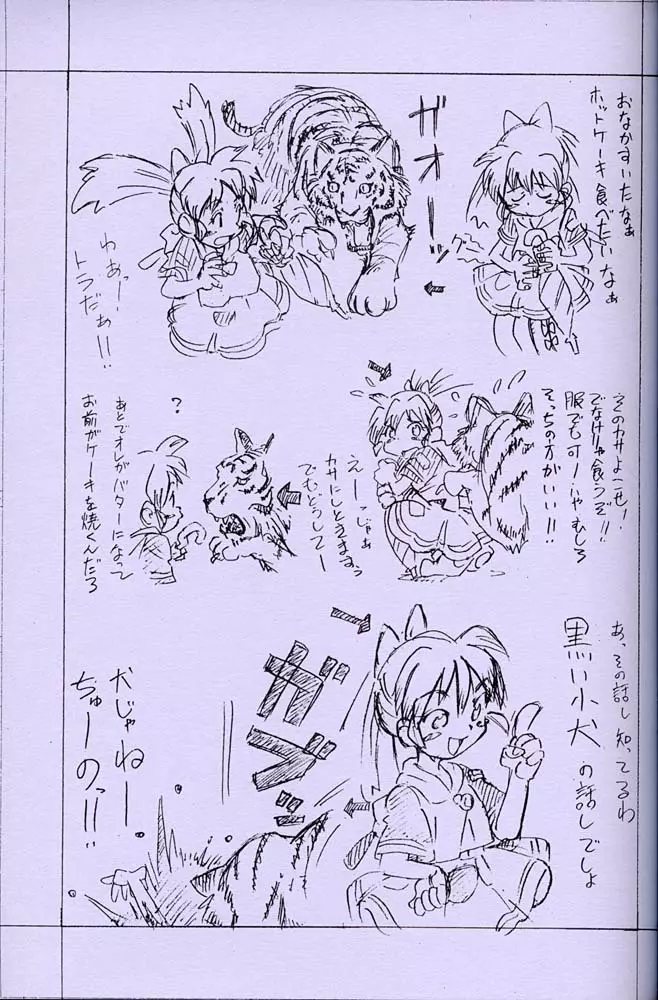 おなかすいたなぁ
ホットケーキ食べたいなぁ
グ〜
ガオーッ
わぁーっ、
トラだぁ!!
そのカサよこせ!
でなけりゃ食うぞ!!
服でも可!いやむしろ
そっちの方がいい!!
えーっじゃぁ
カサにしときますぅ
でもどうしてー
?
あとでオレがバターになって
お前がケーキを焼くんだろ
あ、その話し知ってるわ
黒い小犬
の話しでしょ
ガブッ
犬じゃねー。
ちゅーのっ!!